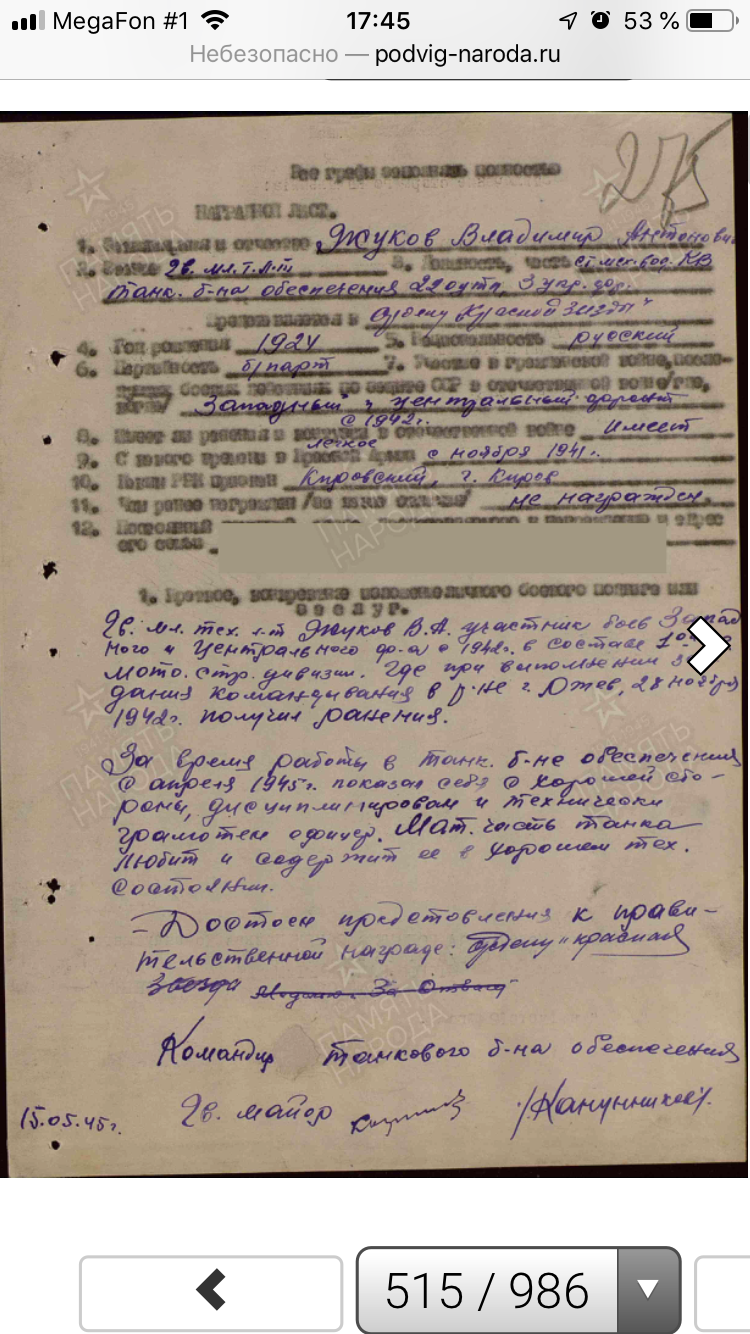 MegaFon #1 17:45 53 %
Небезопасно — podvig-naroda.ru
Все графы заполнять полностью
275
НАГРАДНОЙ ЛИСТ.
1. Фамилия имя и отчество Жуков Владимир Антонович
2. Звание Гв. мл. т. л-т 3. Должность, часть ст. мех. вод. КВ
танк. б-на обеспечения 22
Представляется к ордену "Красной Звезды"
4. Год рождения 1924 5. Национальность русский
6. Партийность б/парт 7. Участие в гражданской войне,
боевых действиях по защите СССР и отечественной войне
Западный и центральный фронт
с 1942г.
8. Имеет ли ранения и контузии в отечественной войне Имеет
легкое
9. С какого времени в Красной Армии с ноября 1941 г.
10. Каким РВК призван Кировский, г. Киров
11. Чем ранее награжден /за какие отличия/ не награжден.
12. Постоянный домашний адрес
его семьи
1. Краткое, конкретное изложение личного боевого подвига или
заслуг.
Гв. мл. тех. л-т Жуков В.А. участник боев Запад
ного и Центрального фр-а с 1942г. в составе
мото. стр. дивизии. Где при выполнении за
дания командования в р-не г. Ржев, 28 ноября
1942г. получил ранения.
За время работы в танк. б-не обеспечения
с апреля 1945г. показал себя с хорошей сто-
роны, дисциплинирован и технически
грамотен офицер. Мат. часть танка
любит и содержит ее в хорошем тех.
состоянии.
– Достоин представления к прави-
тельственной награде: Ордену "Красная
Звезда Медалью "За Отвагу"
Командир танкового б-на обеспечения
15.05.45г. Гв. майор /Канунников/.
515 / 986